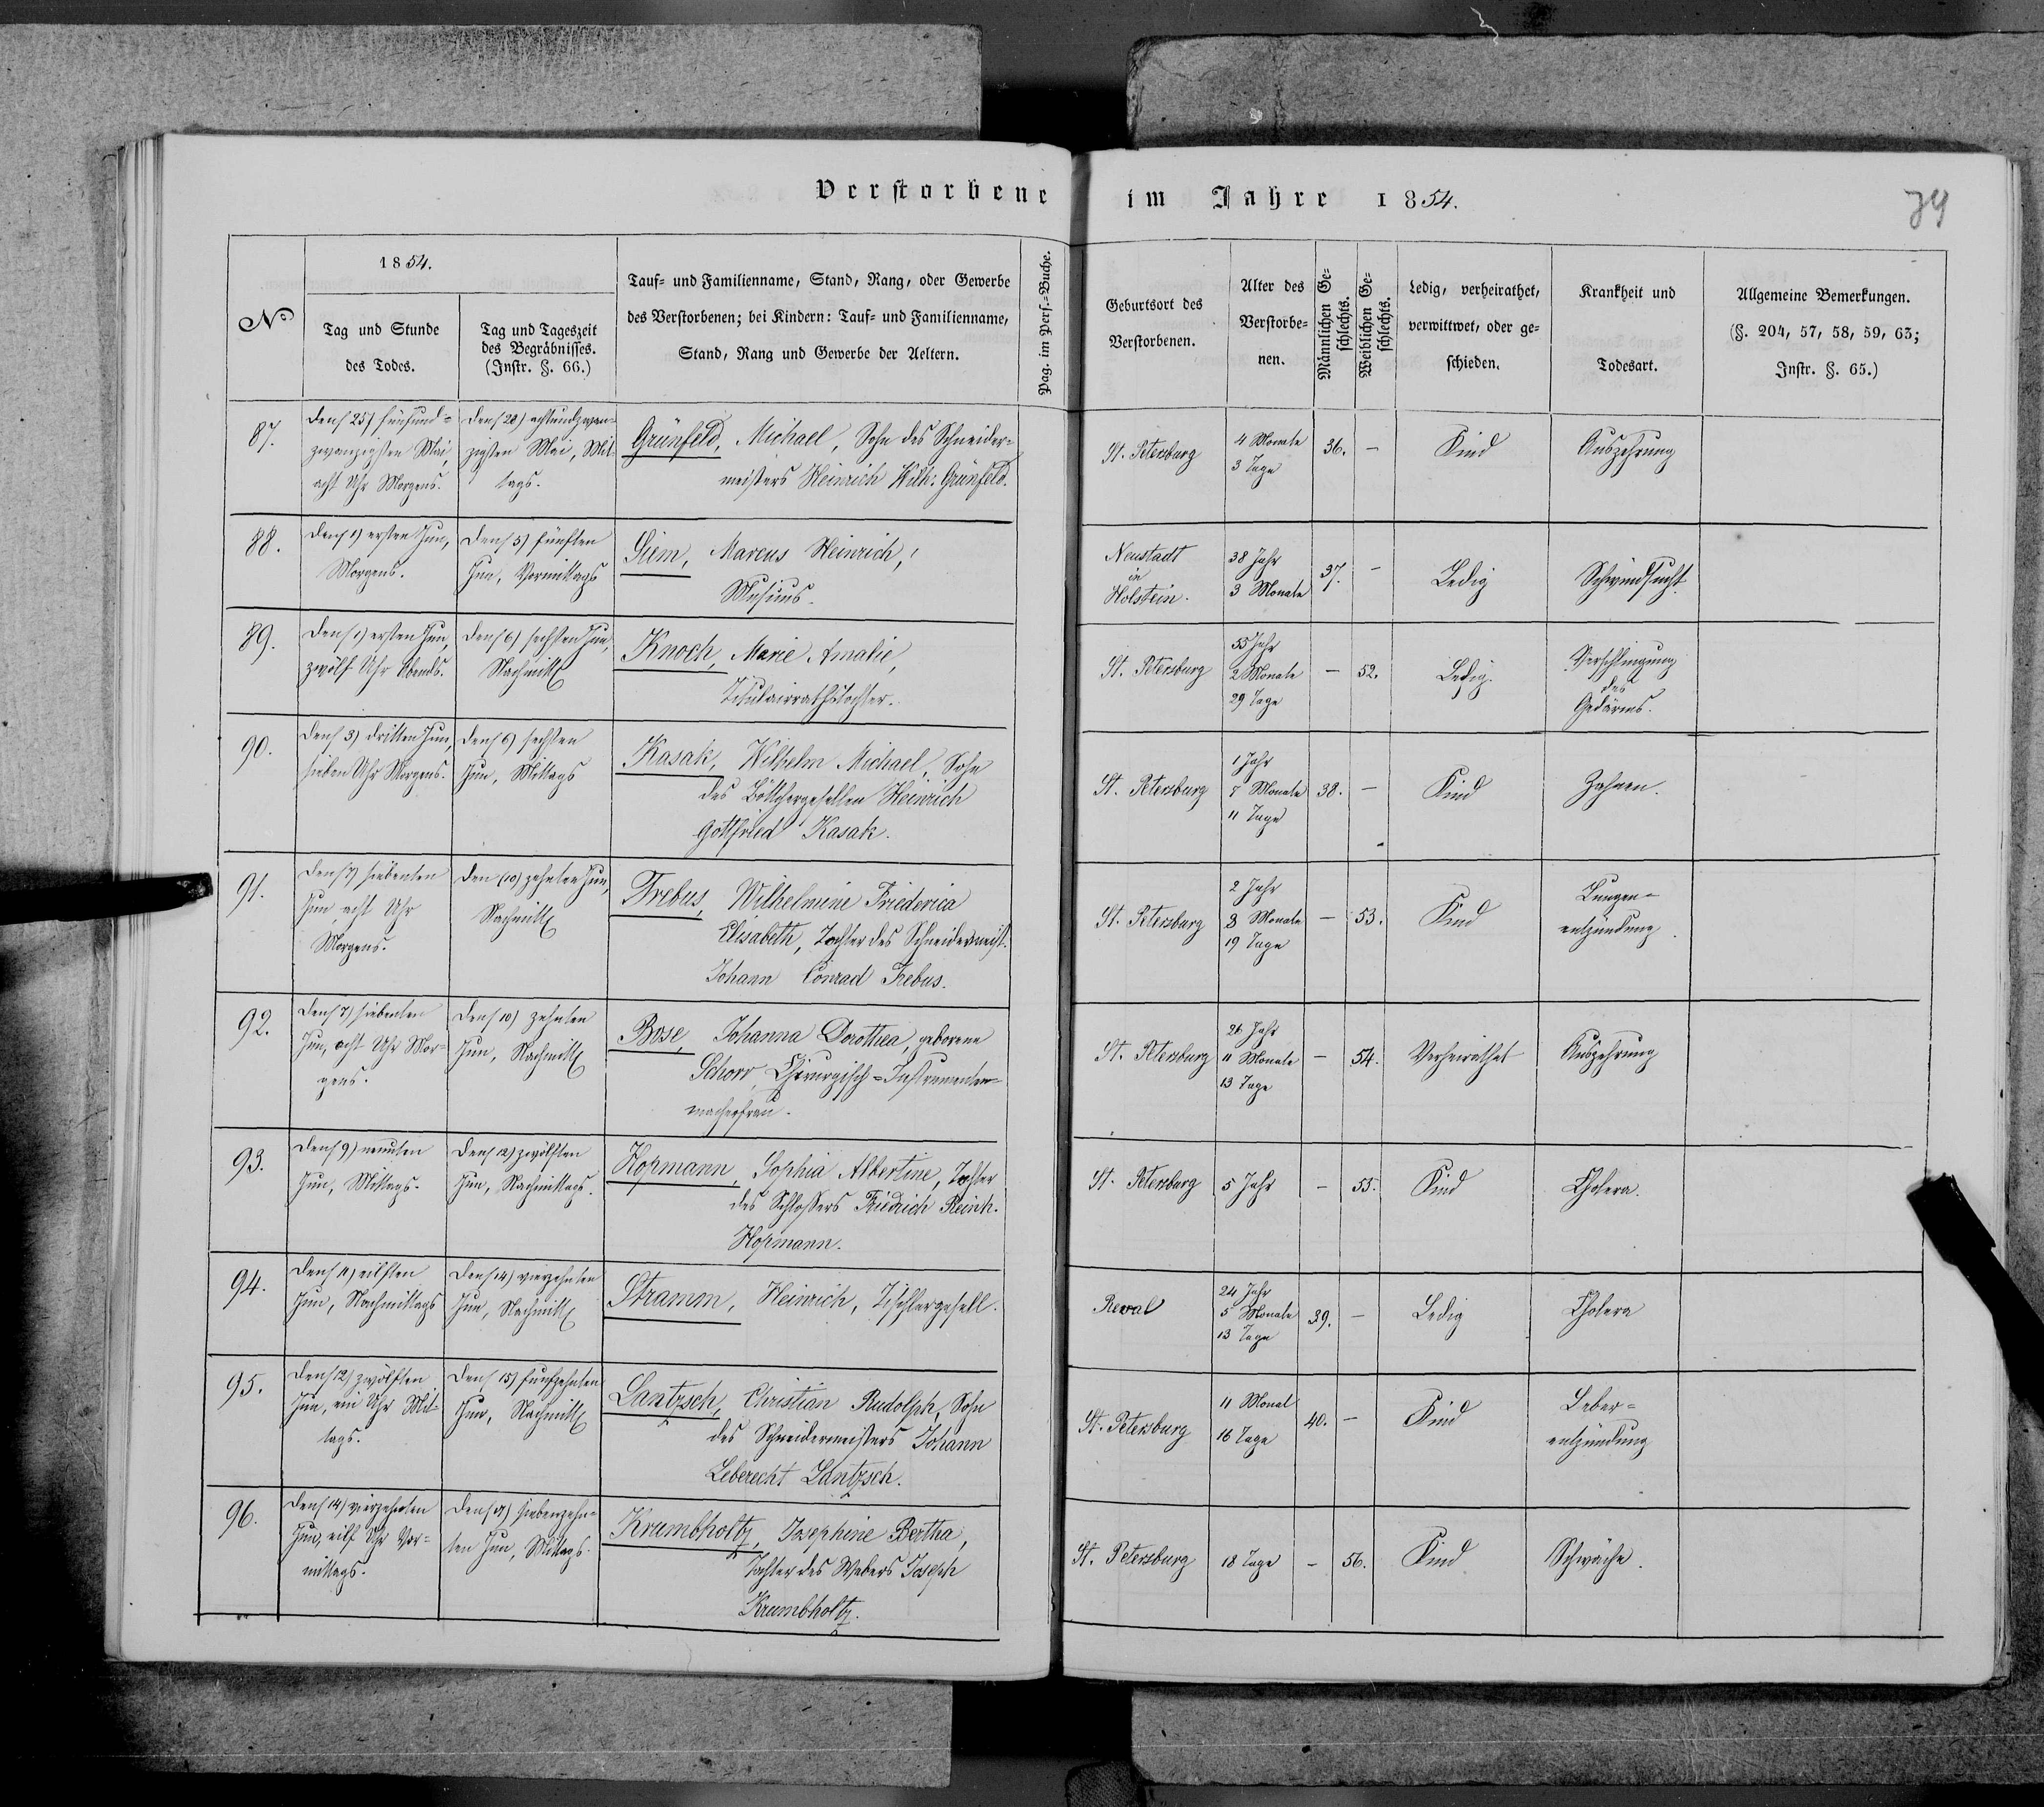 Verstorbene im Jahre 1854.
79
No
1854.
Tag und Stunde
des Todes.
Tag und Tageszeit
des Begräbnisses.
(Instr. §. 66.)
Tauf- und Familienname, Stand, Rang, oder Gewerbe
des Verstorbenen; bei Kindern: Tauf- und Familienname,
Stand, Rang und Gewerbe der Aeltern.
Pag. im Pers.-Buche.
Geburtsort des
Verstorbenen.
Alter des
Verstorbe-
nen.
Männlichen Ge-
schlechts.
Weiblichen Ge-
schlechts.
Ledig, verheirathet,
verwittwet, oder ge-
schieden.
Krankheit und
Todesart.
Allgemeine Bemerkungen.
(§. 204, 57, 58, 59, 63;
Instr. §. 65.)
87.
Den (25) fünfund=
zwanzigsten Mai,
acht Uhr Morgens.
Den (28) achtundzwan-
zigsten Mai, Mit-
tags.
Grünfeld, Michael, Sohn des Schneider=
meisters Heinrich Wilh. Grünfeld.
St. Petersburg
4 Monate
3 Tage
36.
—
Kind
Auszehrung
88.
Den (1) ersten Jun,
Morgens.
Den (5) fünften
Jun, Vormittags
Siem, Marcus Heinrich,
Musicus.
Neustadt
in
Holstein.
38 Jahr
3 Monate
37.
—
Ledig
Schwindsucht.
89.
Den (1) ersten Jun,
zwölf Uhr Abends.
Den (6) sechsten Jun,
Nachmitt
Knoch, Marie Amalie,
Titulairrathstochter.
St. Petersburg
55 Jahr
2 Monate
29 Tage
—
52.
Ledig.
Verschlingung
des
Gedärms.
90.
Den (3) dritten Jun,
sieben Uhr Morgens.
Den (6) sechsten
Jun, Mittags
Kasak, Wilhelm Michael, Sohn
des Böttchergesellen Heinrich
Gottfried Kasak.
St. Petersburg
1 Jahr
7 Monate
11 Tage
38.
—
Kind
Zahnen.
91.
Den (7) siebenten
Jun, acht Uhr
Morgens.
Den (10) zehnten Jun,
Nachmitt
Trebus, Wilhelmine Friederica
Elisabeth, Tochter des Schneidermeist.
Johann Conrad Trebus.
St. Petersburg
2 Jahr
8 Monate
19 Tage
—
53.
Kind
Lungen=
entzündung.
92.
Den (7) siebenten
Jun, acht Uhr Mor-
gens.
Den (10) zehnten
Jun, Nachmitt
Bose, Johanna Dorothea, geborene
Schorr, Chirurgisch=Instrumenten=
macherfrau.
St. Petersburg
26 Jahr
11 Monate
13 Tage
—
54.
Verheirathet
Auszehrung
93.
Den (9) neunten
Jun, Mittags.
Den (12) zwölften
Jun, Nachmittags.
Hopmann, Sophia Albertine, Tochter
des Schlossers Friedrich Reinh.
Hopmann.
St. Petersburg
5 Jahr
—
55.
Kind
Cholera.
94.
Den (11) eilften
Jun, Nachmittags
Den (14) vierzehnten
Jun, Nachmitt
Stramm, Heinrich, Tischlergesell.
Reval
24 Jahr
5 Monate
13 Tage
39.
—
Ledig
Cholera
95.
Den (12) zwölften
Jun, ein Uhr Mit-
tags.
Den (15) funfzehnten
Jun, Nachmitt
Lantzsch, Christian Rudolph, Sohn
des Schneidermeisters Johann
Leberecht Lantzsch.
St. Petersburg
11 Monat
16 Tage
40.
—
Kind
Leber=
entzündung
96.
Den (14) vierzehnten
Jun, eilf Uhr Vor=
mittags.
Den (17) siebenzehn-
ten Jun, Mittags.
Krumbholtz, Josephine Bertha,
Tochter des Webers Joseph
Krumbholtz.
St. Petersburg
18 Tage
—
56.
Kind
Schwäche.